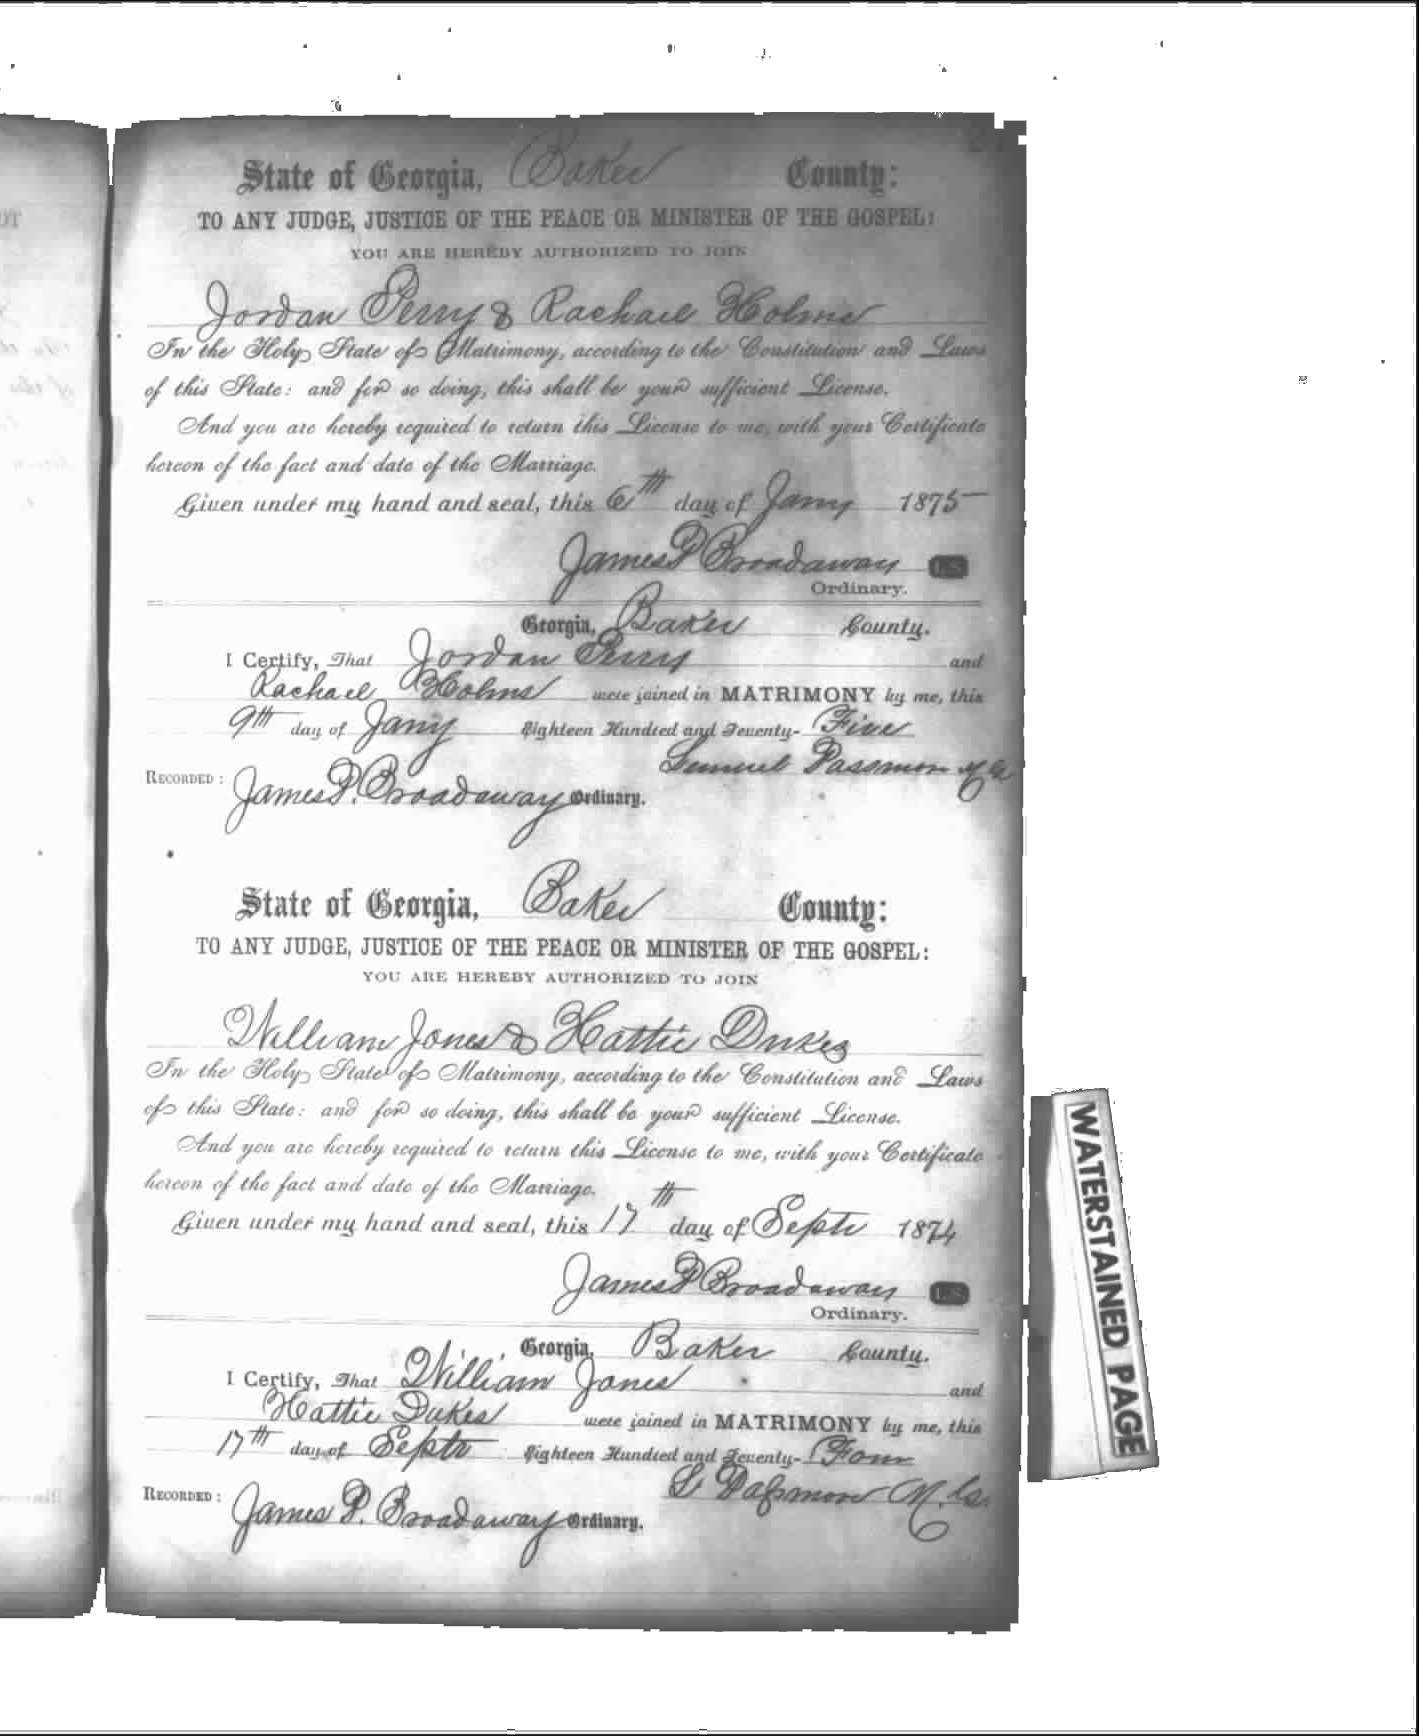 State of Georgia, Baker County:
TO ANY JUDGE, JUSTICE OF THE PEACE OR MINISTER OF THE GOSPEL:
YOU ARE HEREBY AUTHORIZED TO JOIN
Jordan Perry & Rachael Holms
In the Holy State of Matrimony, according to the Constitution and Laws
of this State: and for so doing, this shall be your sufficient License.
And you are hereby required to return this License to me, with your Certificate
hereon of the fact and date of the Marriage.
Given under my hand and seal, this 6th day of Jany 1875
James P Broadaway L.S.
Ordinary.
Georgia, Baker County.
I Certify, That Jordan Perry and
Rachael Holms were joined in MATRIMONY by me, this
9th day of Jany Eighteen Hundred and Seventy-Five
Lemuel Passmore
RECORDED: James P. Broadaway Ordinary.
State of Georgia, Baker County:
TO ANY JUDGE, JUSTICE OF THE PEACE OR MINISTER OF THE GOSPEL:
YOU ARE HEREBY AUTHORIZED TO JOIN
William Jones & Hattie Dukes
In the Holy State of Matrimony, according to the Constitution and Laws
of this State: and for so doing, this shall be your sufficient License.
And you are hereby required to return this License to me, with your Certificate
hereon of the fact and date of the Marriage.
Given under my hand and seal, this 17th day of Septr 1874
James P Broadaway L.S.
Ordinary.
Georgia, Baker County.
I Certify, That William Jones and
Hattie Dukes were joined in MATRIMONY by me, this
17th day of Septr Eighteen Hundred and Seventy-Four
L Passmore M.G.
RECORDED: James P. Broadaway Ordinary.
WATERSTAINED PAGE